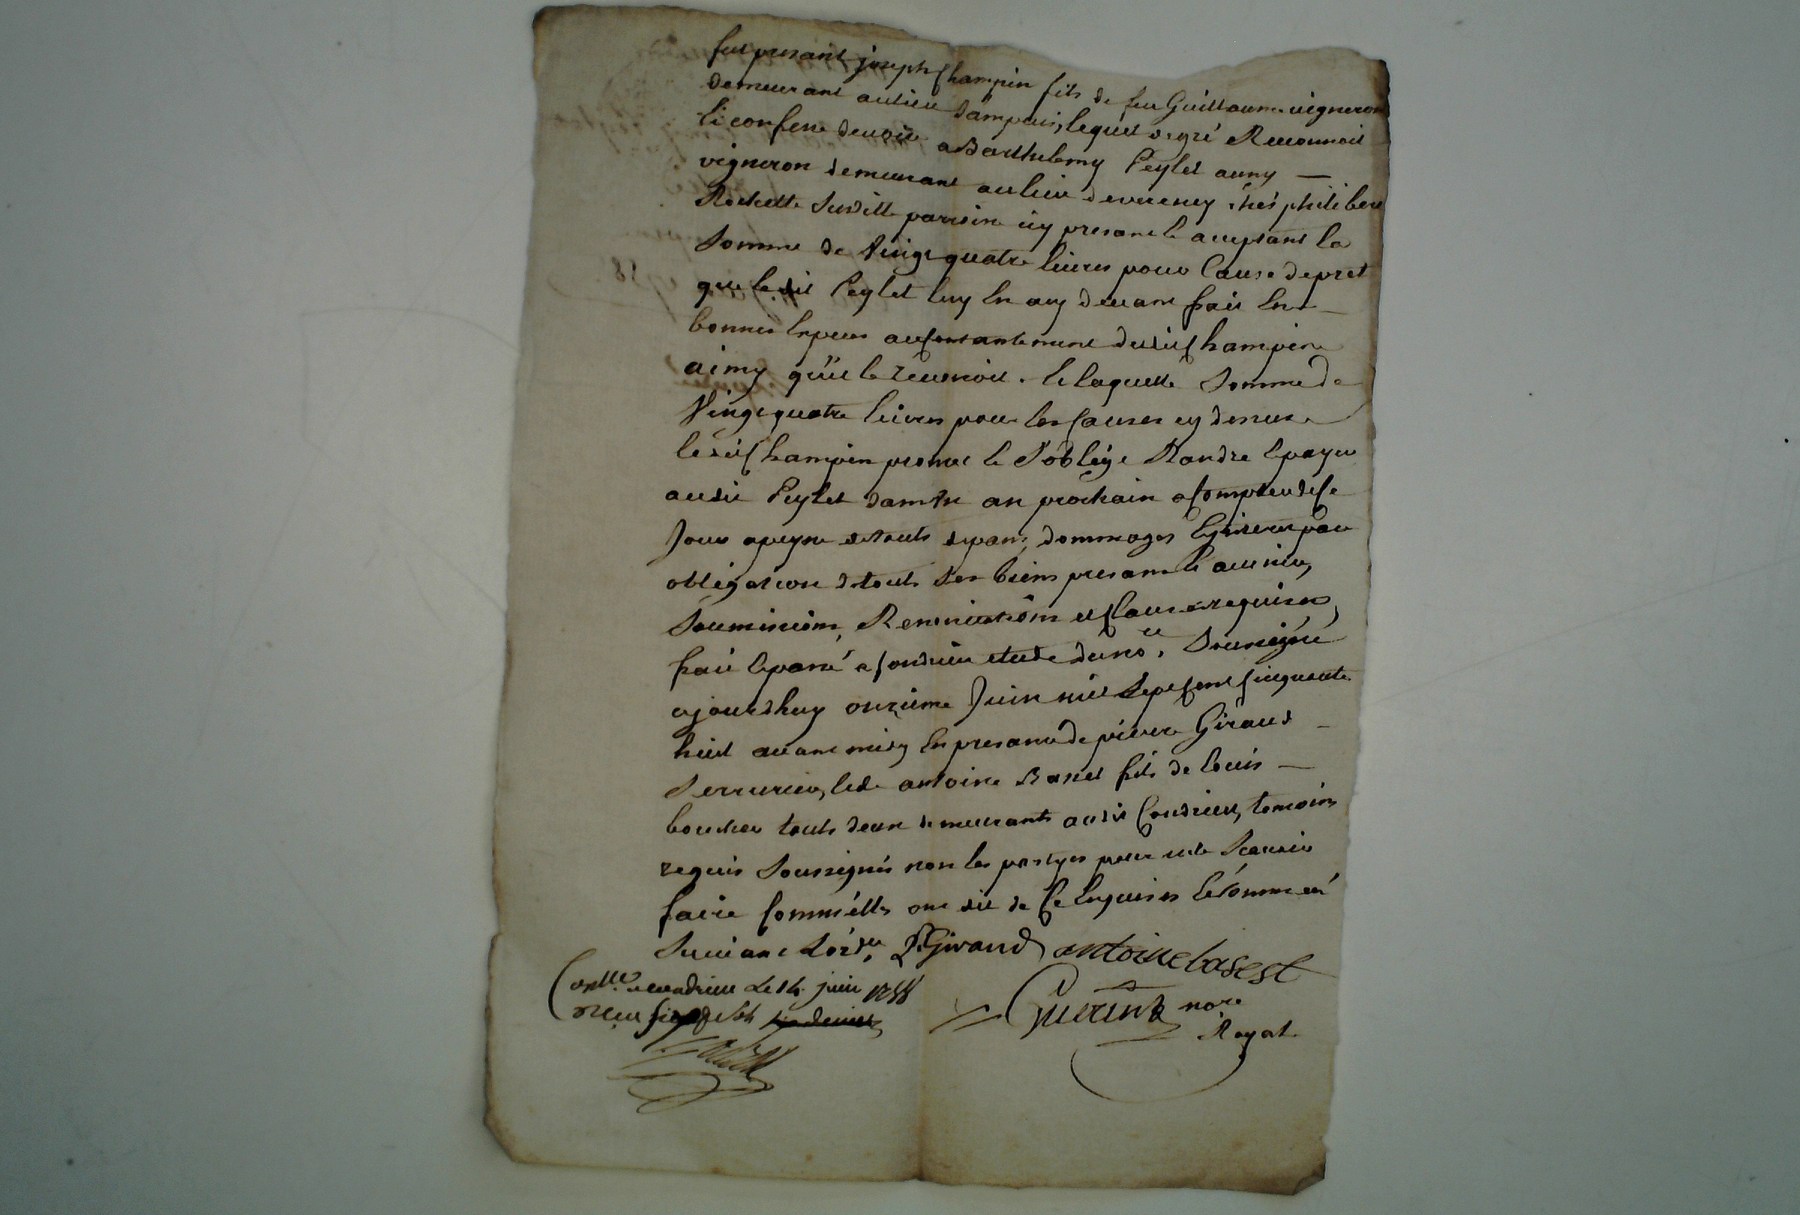 fut presant joseph Champin fils de feu Guillaume vigneron
demeurant au lieu d'ampuis, lequel de gré Reconnoit
et confesse devoir a Barthelemy Peylet aussy
vigneron demeurant au lieu de verenay chés philibert
Rochette susditte parroisse icy presant et acceptant la
somme de vingt quatre livres pour Cause de pret
que ledit Peylet luy en a cy devant fait en
bonnes Especes au contantement dudit Champin
ainsy qu'il le reconnoit. et laquelle somme de
vingt quatre livres pour les Causes cy dessus
ledit Champin promet et s'oblige Randre et payer
audit Peylet dans un an prochain a Compter de Ce
Jour a peyne de touts depans, dommages et interets par
obligation de touts ses biens presants et avenir,
soumissions, Renonciations et Clauses requises,
fait et passé a Condrieu etude du nore. soussigné
ajourdhuy onzieme Juin mil sept Cent Cinquante
huit avant midy en presance de pierre Giraud
serrurier, et de antoine Baset fils de Louis
boucher touts deux demeurants audit Condrieu, temoins
requis soussignés non les partyes pour ne le scavoir
faire Comm'elles ont dit de Ce Enquises et sommées
suivant l'ord.ce P Giraud antoine baset
Con.lle a condrieu Le 14. juin 1758
Guerin nore
Royal